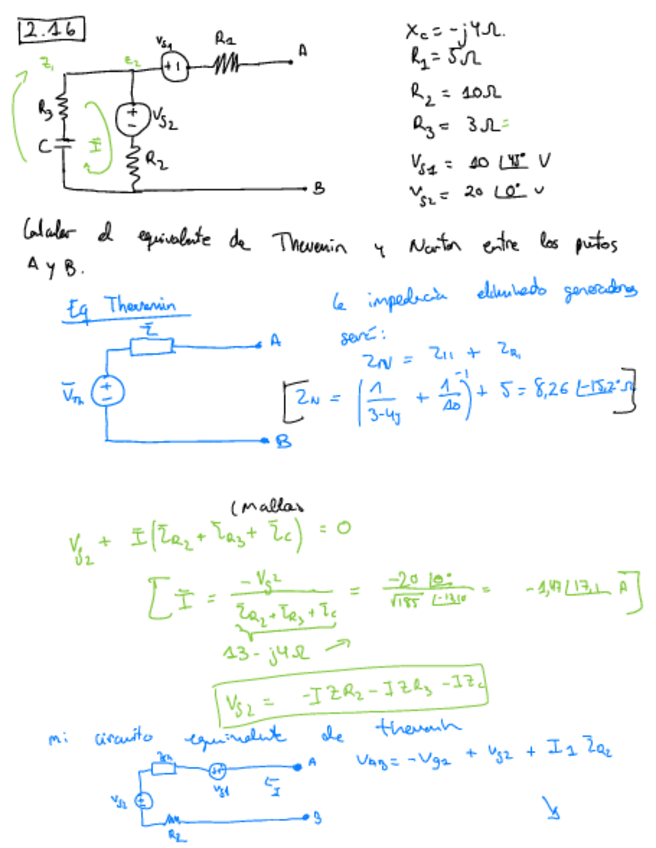 2.16
Vs1
R1
A
Z1
e2
+
R3
+
-
Vs2
C
I
R2
B
Xc = -j4Ω.
R1 = 5Ω
R2 = 10Ω
R3 = 3Ω =
Vs1 = 10 ∠45° V
Vs2 = 20 ∠0° v
Calcular el equivalente de Thevenin y Norton entre los puntos
A y B.
Eq Thevenin
Z
A
+
-
VTh
B
la impedancia eliminado generadores
será:
ZN = Z11 + ZR1
[ZN = (1/(3-4j) + 1/10)^-1 + 5 = 8,26 ∠-15,2° Ω]
(mallas
Vg2 + I(ZR2 + ZR3 + Zc) = 0
[I = -Vg2/(ZR2 + ZR3 + Zc) = -20 ∠0°/√185 = -1,47 ∠17,1 A]
13 - j4Ω
Vg2 = -I ZR2 - I ZR3 - I Zc
mi circuito equivalente de thevenin
A
Vg1
Vg2
R2
B
VAB = -Vg1 + Vg2 + I1 ZR2